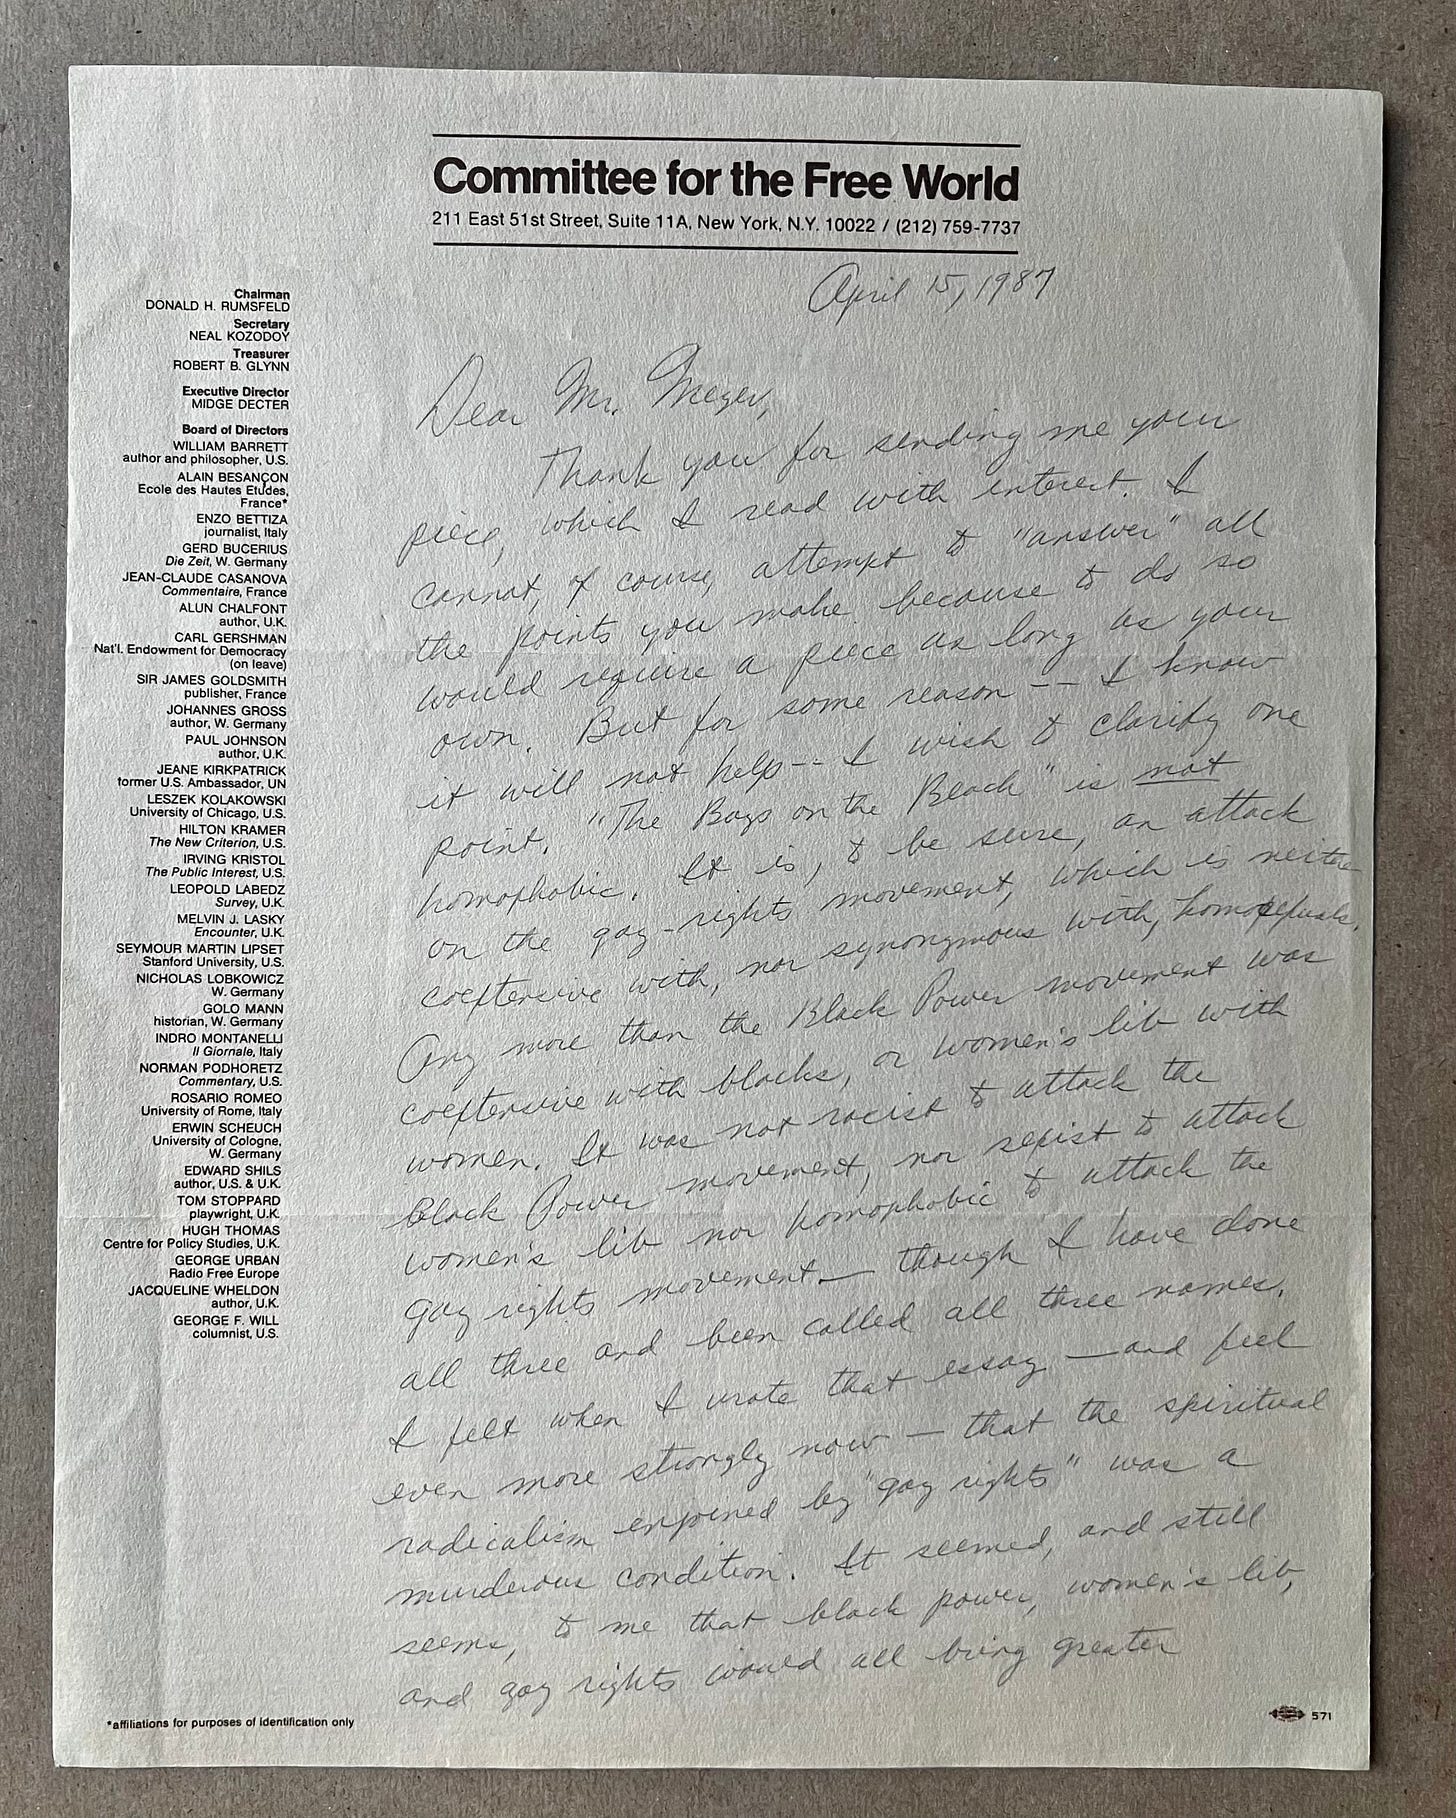 Committee for the Free World
211 East 51st Street, Suite 11A, New York, N.Y. 10022 / (212) 759-7737
April 15, 1987
Chairman
DONALD H. RUMSFELD
Secretary
NEAL KOZODOY
Treasurer
ROBERT B. GLYNN
Executive Director
MIDGE DECTER
Board of Directors
WILLIAM BARRETT
author and philosopher, U.S.
ALAIN BESANÇON
Ecole des Hautes Etudes,
France*
ENZO BETTIZA
journalist, Italy
GERD BUCERIUS
Die Zeit, W. Germany
JEAN-CLAUDE CASANOVA
Commentaire, France
ALUN CHALFONT
author, U.K.
CARL GERSHMAN
Nat'l. Endowment for Democracy
(on leave)
SIR JAMES GOLDSMITH
publisher, France
JOHANNES GROSS
author, W. Germany
PAUL JOHNSON
author, U.K.
JEANE KIRKPATRICK
former U.S. Ambassador, UN
LESZEK KOLAKOWSKI
University of Chicago, U.S.
HILTON KRAMER
The New Criterion, U.S.
IRVING KRISTOL
The Public Interest, U.S.
LEOPOLD LABEDZ
Survey, U.K.
MELVIN J. LASKY
Encounter, U.K.
SEYMOUR MARTIN LIPSET
Stanford University, U.S.
NICHOLAS LOBKOWICZ
W. Germany
GOLO MANN
historian, W. Germany
INDRO MONTANELLI
Il Giornale, Italy
NORMAN PODHORETZ
Commentary, U.S.
ROSARIO ROMEO
University of Rome, Italy
ERWIN SCHEUCH
University of Cologne,
W. Germany
EDWARD SHILS
author, U.S. & U.K.
TOM STOPPARD
playwright, U.K.
HUGH THOMAS
Centre for Policy Studies, U.K.
GEORGE URBAN
Radio Free Europe
JACQUELINE WHELDON
author, U.K.
GEORGE F. WILL
columnist, U.S.
Dear Mr. Meyer,
Thank you for sending me your
piece, which I read with interest. I
cannot, of course, attempt to "answer" all
the points you make because to do so
would require a piece as long as your
own. But for some reason -- I know
it will not help -- I wish to clarify one
point. "The Boys on the Beach" is not
homophobic. It is, to be sure, an attack
on the gay-rights movement, which is neither
coextensive with, nor synonymous with, homosexuals.
Any more than the Black Power movement was
coextensive with blacks, or women's lib with
women. It was not racist to attack the
Black Power movement, nor sexist to attack
women's lib nor homophobic to attack the
gay rights movement — though I have done
all three and been called all three names.
I felt when I wrote that essay — and feel
even more strongly now — that the spiritual
radicalism enjoined by "gay rights" was a
murderous condition. It seemed, and still
seems, to me that black power, women's lib,
and gay rights would all bring greater
*affiliations for purposes of identification only
571